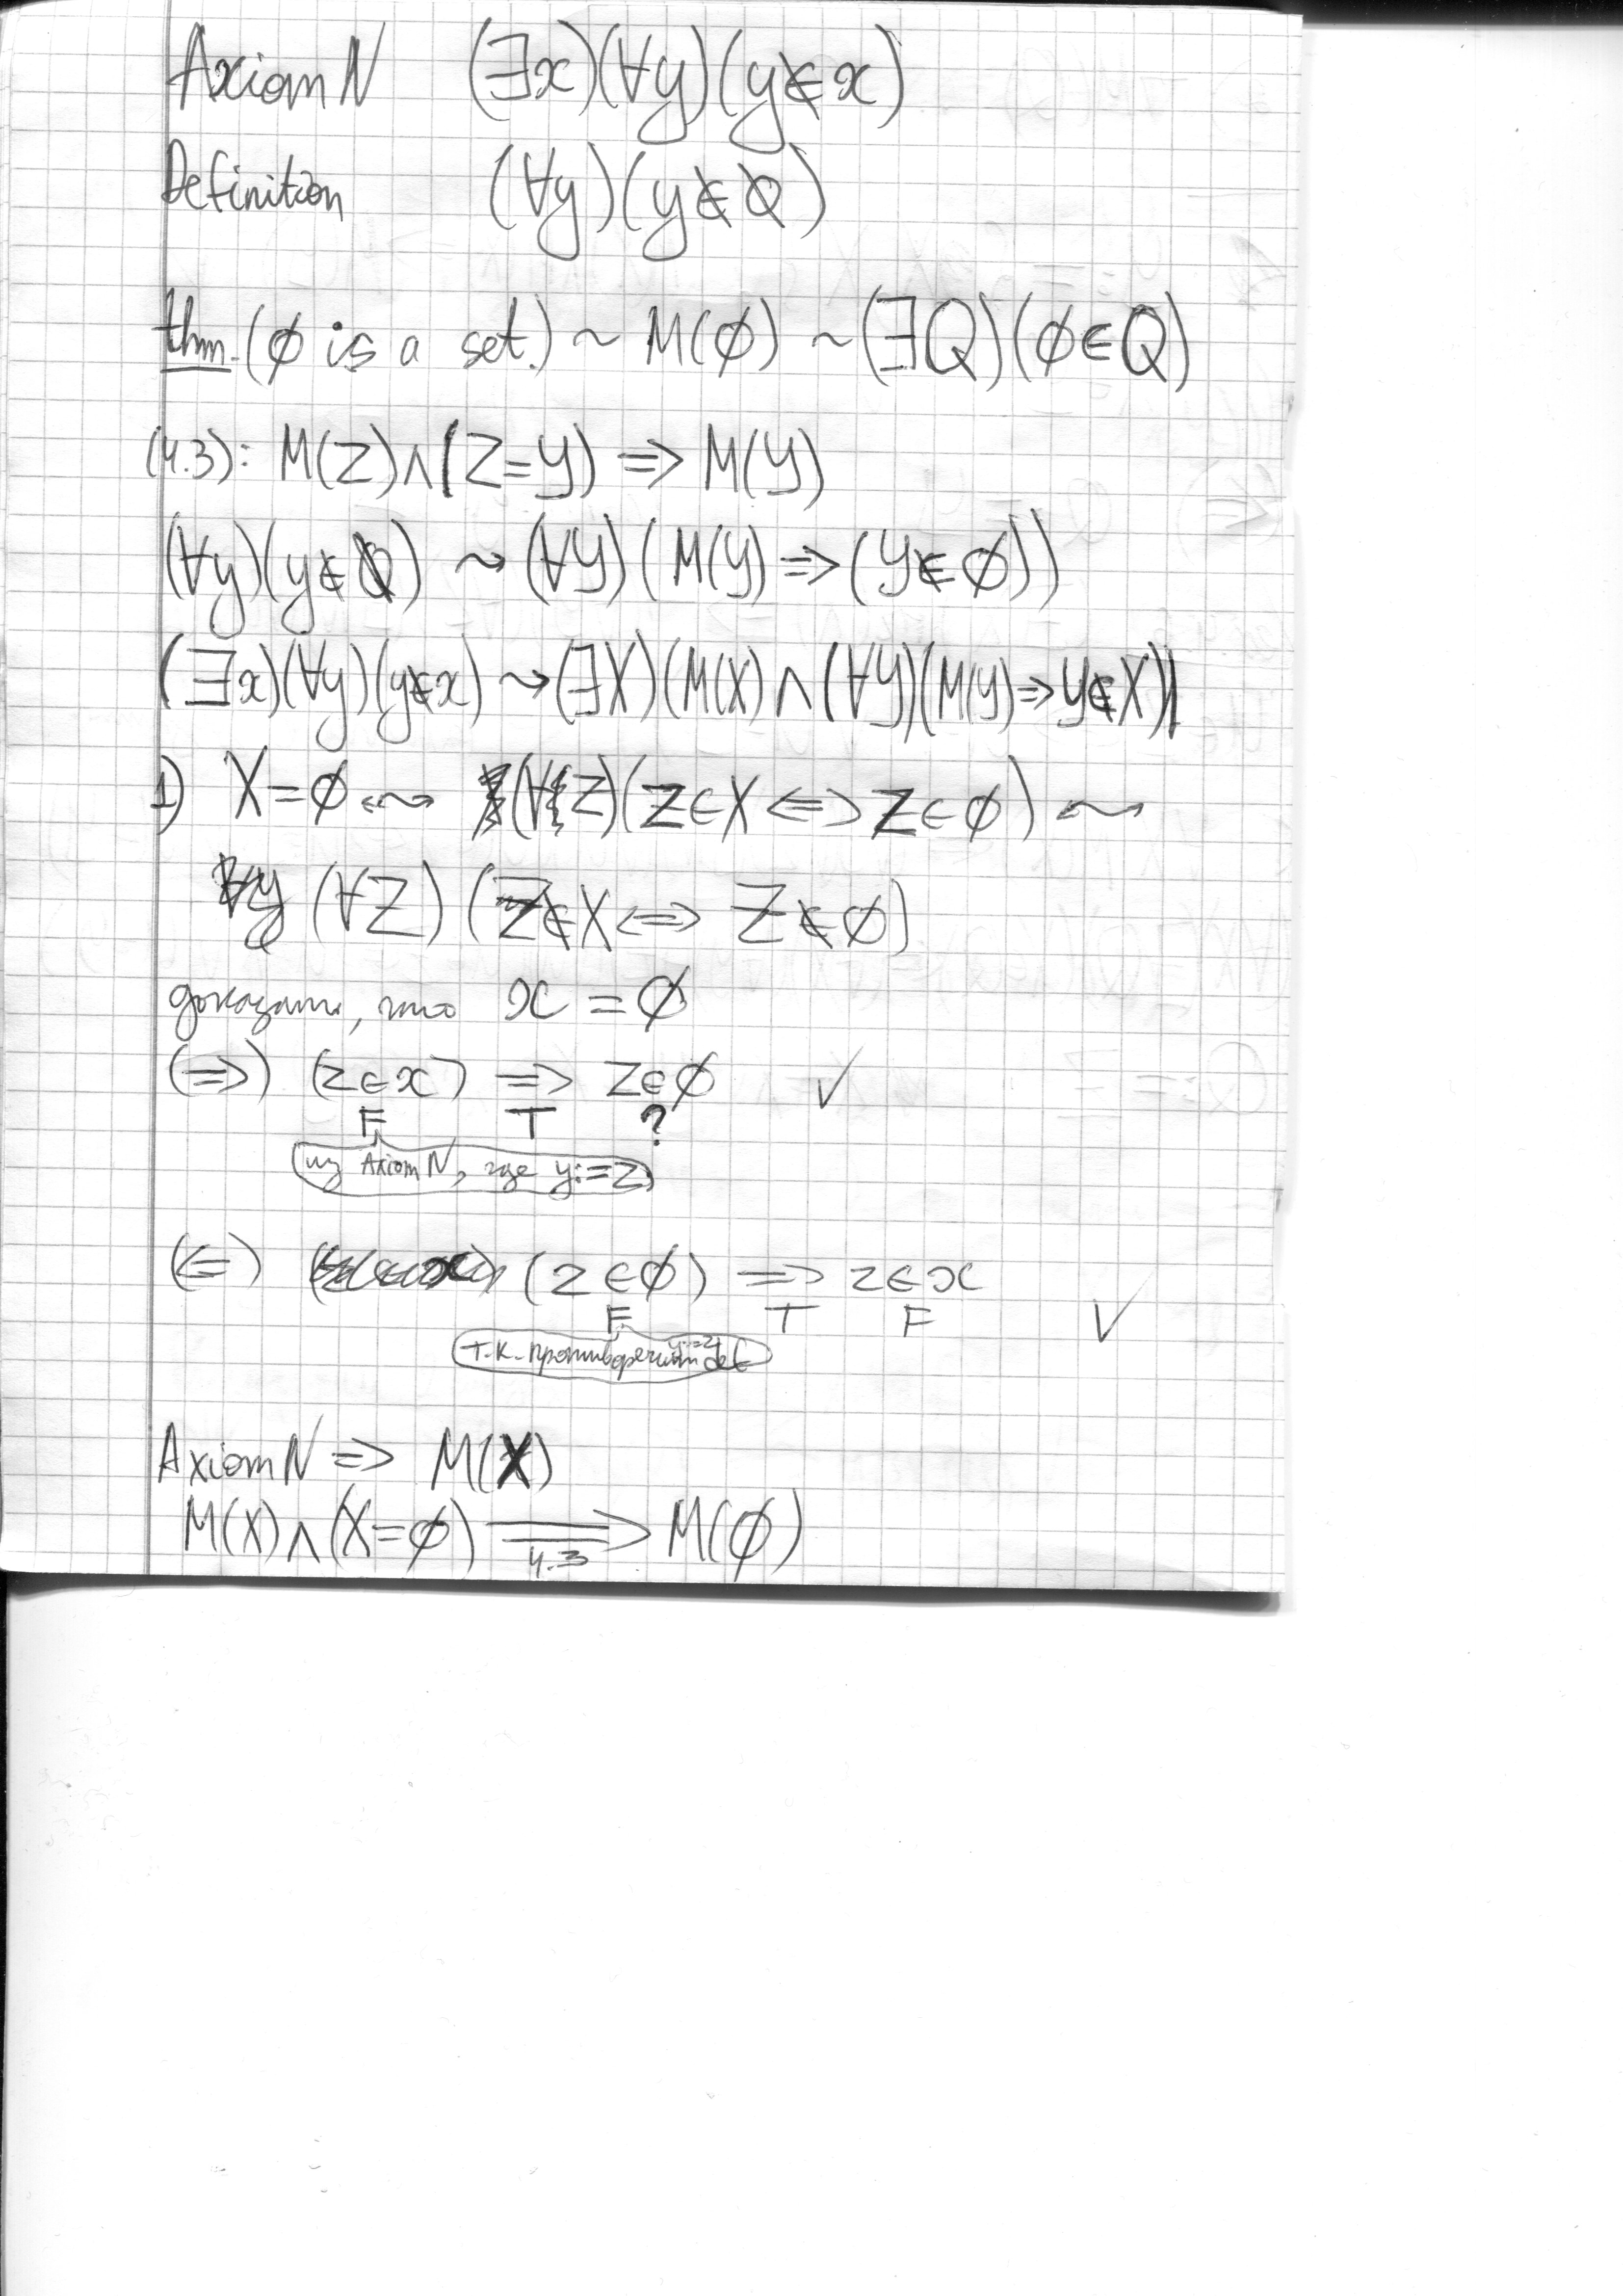 Axiom N (∃x)(∀y)(y∉x)
Definition (∀y)(y∉∅)
thm. (∅ is a set.) ~ M(∅) ~ (∃Q)(∅∈Q)
(4.3): M(Z)∧(Z=Y) => M(Y)
(∀y)(y∉∅) ⇝ (∀Y)(M(Y) => (Y∉∅))
(∃x)(∀y)(y∉x) ⇝ (∃X)(M(X)∧(∀Y)(M(Y)=>Y∉X))
1) X=∅ ⇝ (∀Z)(Z∈X <=> Z∈∅) ⇝
(∀Z)(Z∉X <=> Z∉∅)
доказать, что x = ∅
(=>) (z∈x) => z∈∅ ✓
F T ?
из Axiom N, где y:=z
(<=) (z∈∅) => z∈x
F T F ✓
т.к. противоречит def y:=z
Axiom N => M(X)
M(X)∧(X=∅) => M(∅)
4.3